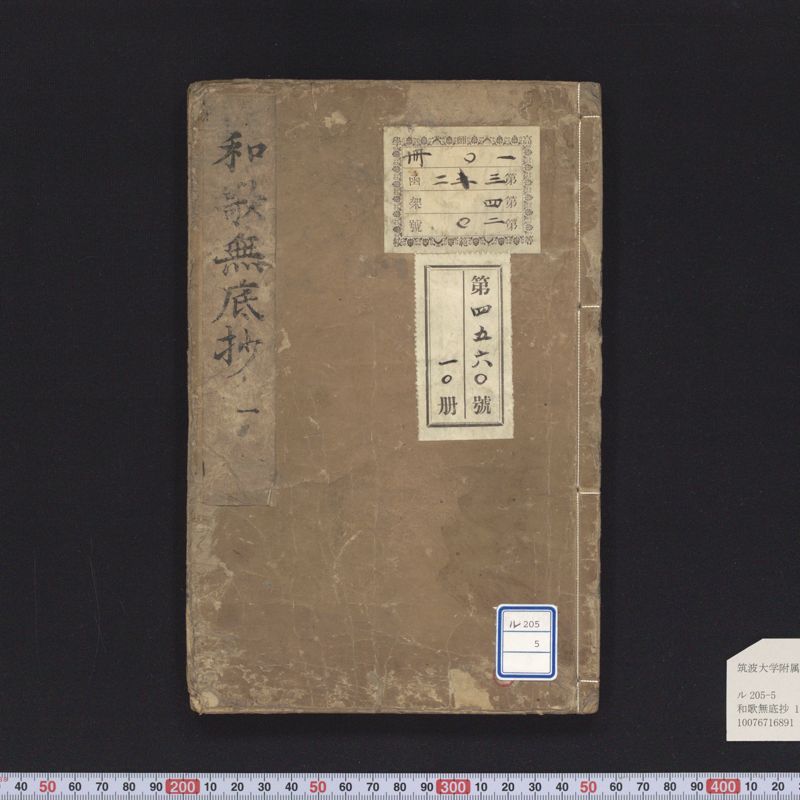 和歌無底抄 一
一〇冊
第三 二函
第四架
第二〇號
第四五六〇號
一〇册
ル 205
5
筑波大学附属
ル 205-5
和歌無底抄 1
10076716891
40 50 60 70 80 90 200 10 20 30 40 50 60 70 80 90 300 10 20 30 40 50 60 70 80 90 400 10 20